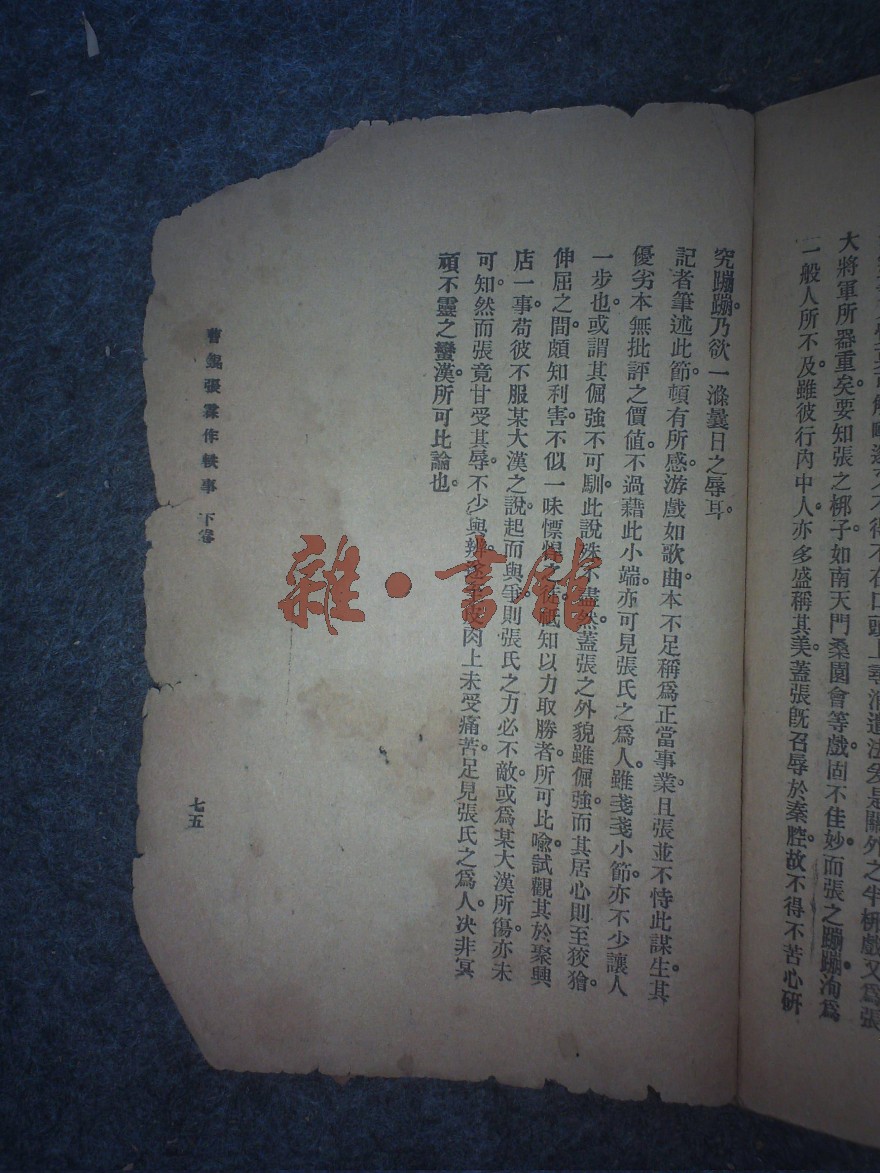 大將軍所器重矣。要知張之梆子如南天門桑園會等戲。固不佳妙。而張之蹦蹦洵爲
一般人所不及。雖彼行內中人。亦多盛稱其美。蓋張旣召辱於秦腔。故不得不苦心研
究蹦蹦。乃欲一滌曩日之辱耳。
記者筆述此節。頓有所感。游戲如歌曲。本不足稱爲正當事業。且張並不恃此謀生。其
優劣本無批評之價值。不過藉此小端。亦可見張氏之爲人。雖戔戔小節。亦不少讓人
一步也。或謂其倔強不可馴。此說殊不盡然。蓋張之外貌雖倔強。而其居心則至狡獪。
伸屈之間。頗知利害。不似一味慓悍之 知以力取勝者。所可比喩。試觀其於聚興
店一事。苟彼不服某大漢之說。起而與爭。則張氏之力必不敵。或爲某大漢所傷。亦未
可知。然而張竟甘受其辱。不少與辨 肉上未受痛苦。足見張氏之爲人。决非冥
頑不靈之蠻漢。所可比論也。
曹錕張霖作軼事 下卷
七五
雜·書館